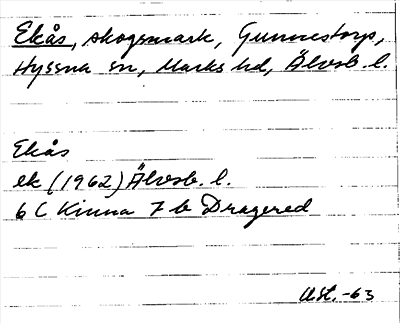 Ekås, skogsmark, Gunnestorp,
Hyssna sn, Marks hd, Älvsb. l.
Ekås
ek (1962) Älvsb. l.
6 C Kinna 7 b Dragered
Ust. -63